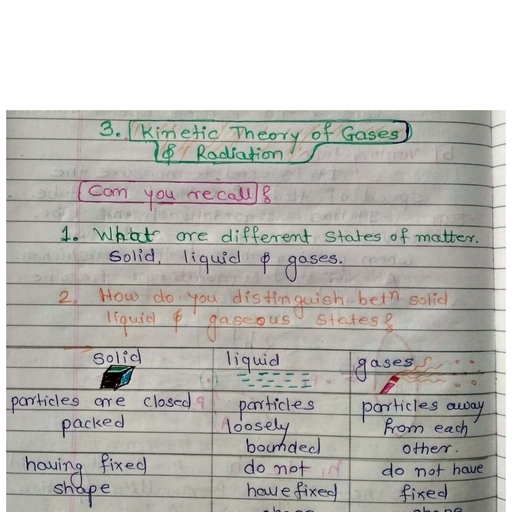 3. Kinetic Theory of Gases
& Radiation.
Can you recall?
1. What are different states of matter.
Solid, liquid & gases.
2. How do you distinguish betn solid
liquid & gaseous states?
solid liquid gases
particles are closed particles particles away
packed loosely from each
bounded other.
having fixed do not do not have
shape have fixed fixed
shape shape